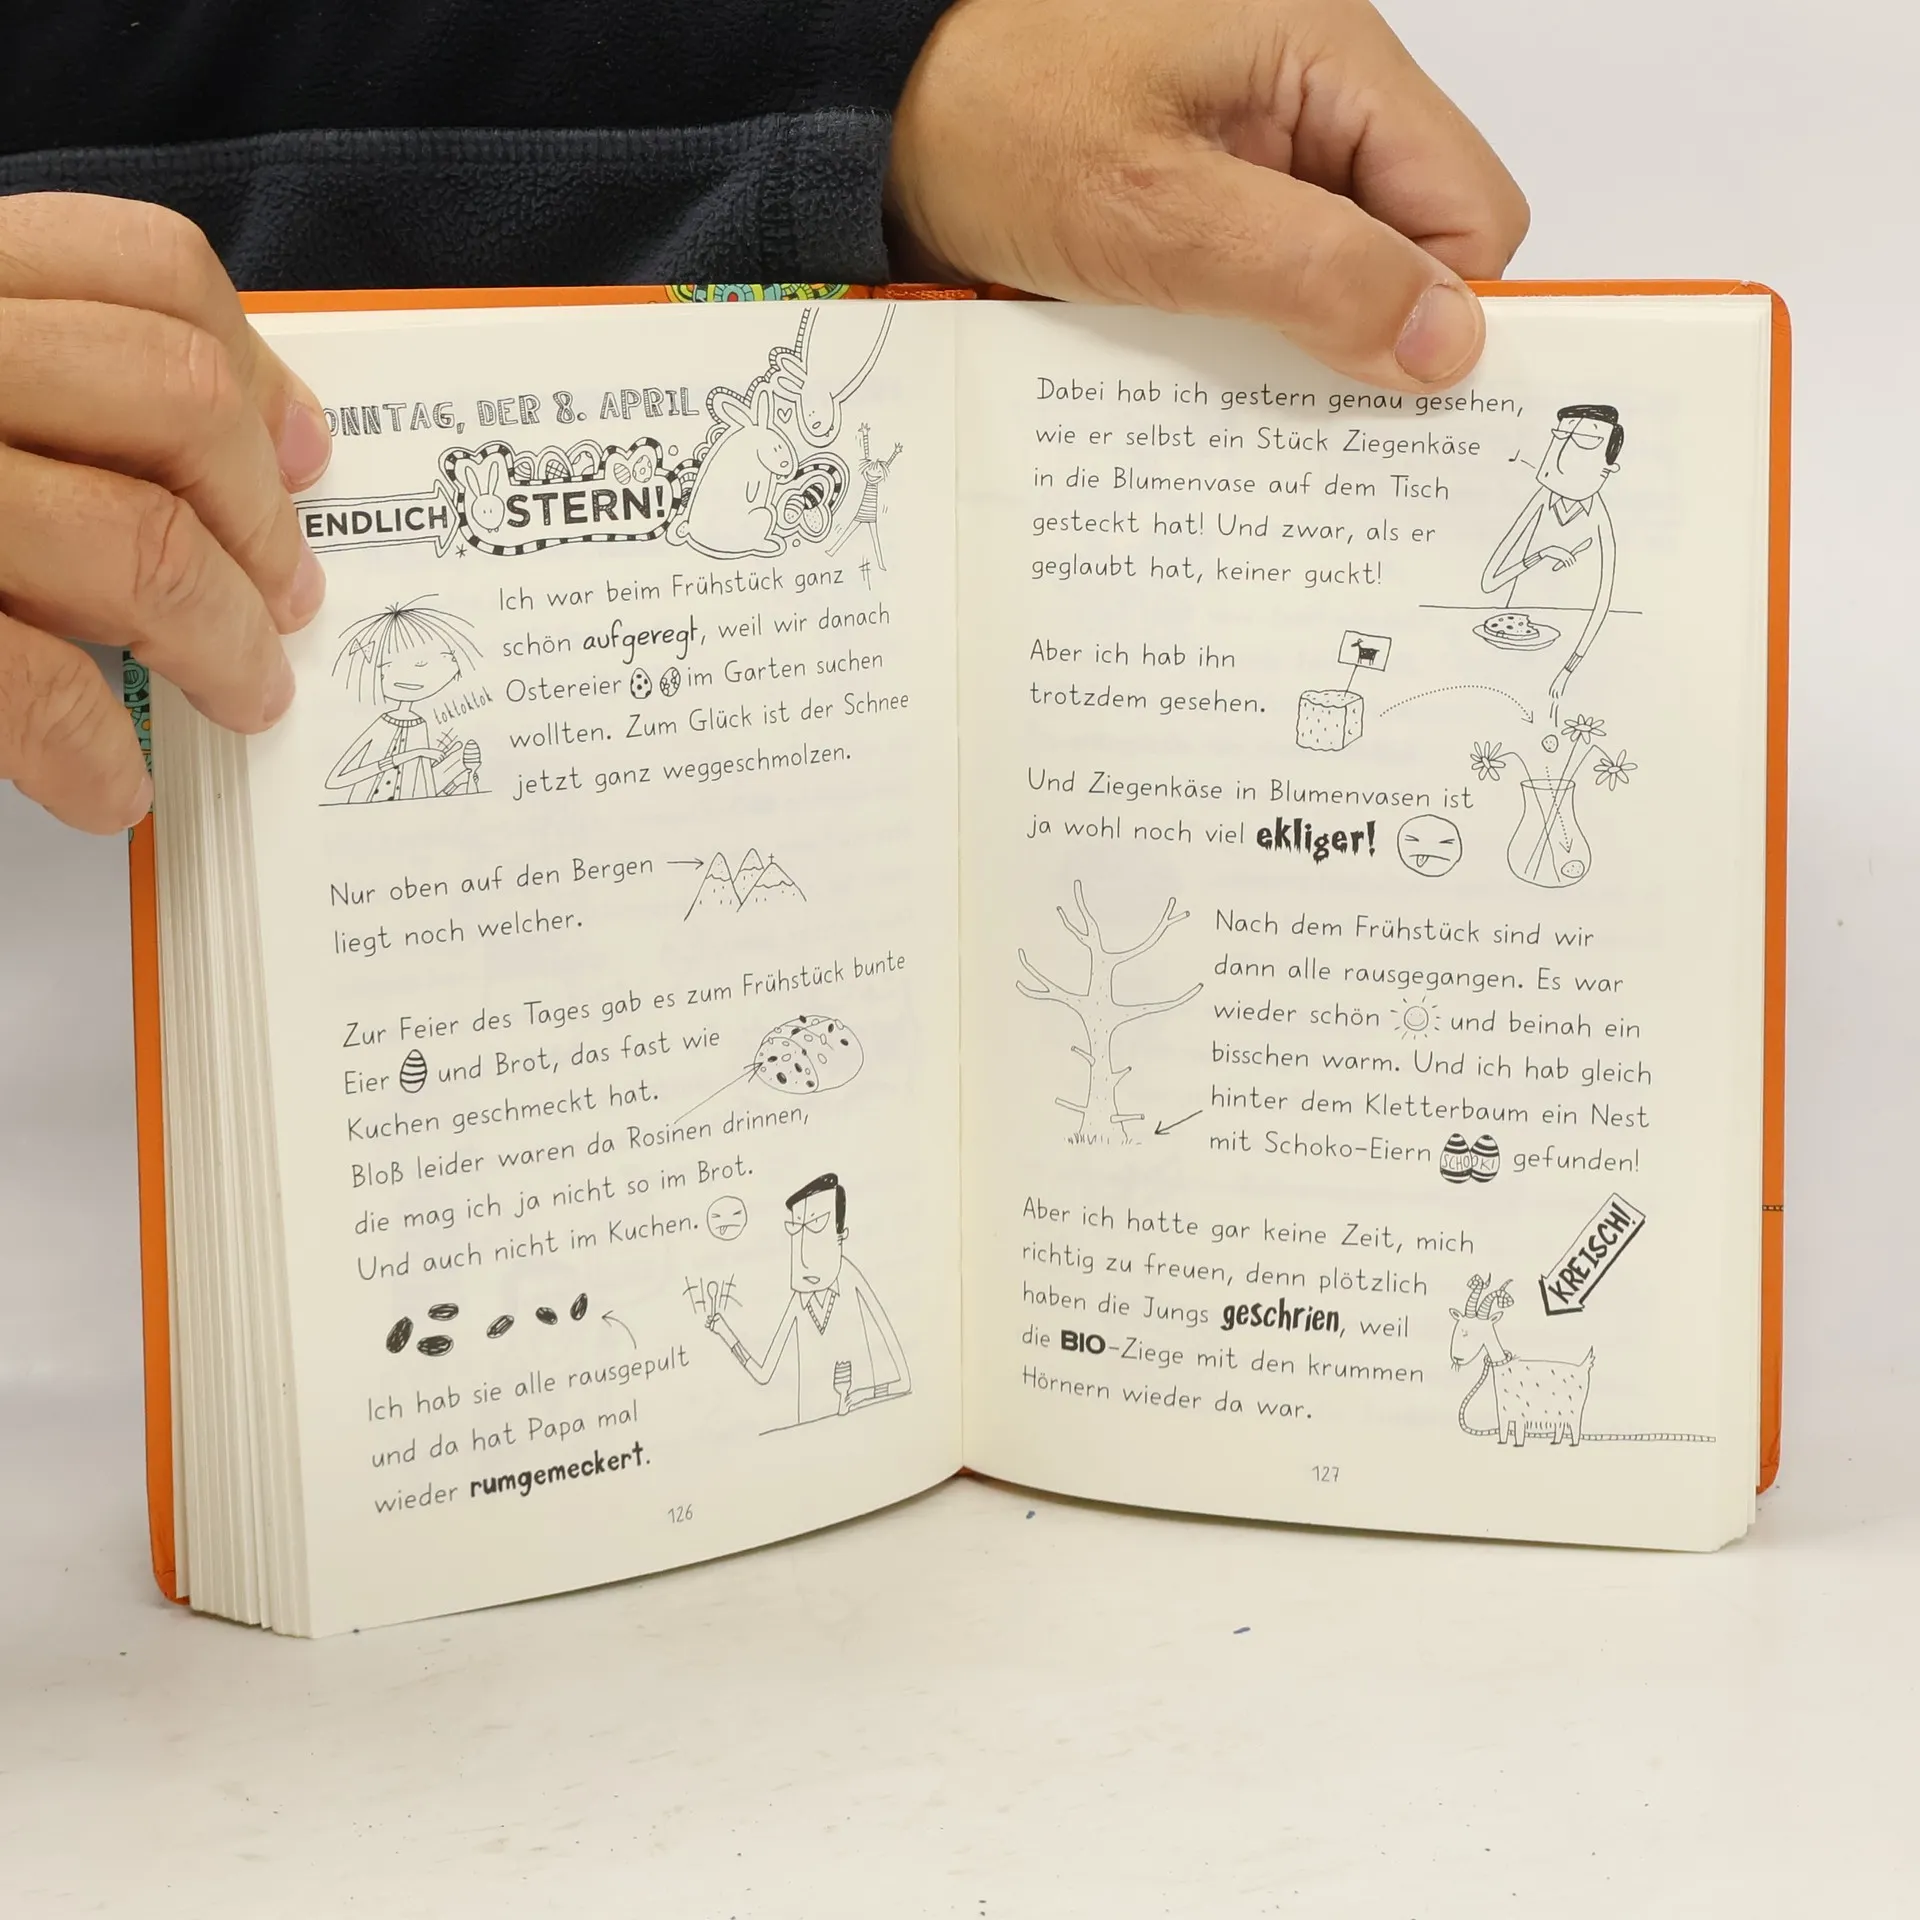 SONNTAG, DER 8. APRIL
ENDLICH OSTERN!
Ich war beim Frühstück ganz
schön aufgeregt, weil wir danach
Ostereier im Garten suchen
wollten. Zum Glück ist der Schnee
jetzt ganz weggeschmolzen.
toktoktok
Nur oben auf den Bergen
liegt noch welcher.
Zur Feier des Tages gab es zum Frühstück bunte
Eier und Brot, das fast wie
Kuchen geschmeckt hat.
Bloß leider waren da Rosinen drinnen,
die mag ich ja nicht so im Brot.
Und auch nicht im Kuchen.
Ich hab sie alle rausgepult
und da hat Papa mal
wieder rumgemeckert.
126
Dabei hab ich gestern genau gesehen,
wie er selbst ein Stück Ziegenkäse
in die Blumenvase auf dem Tisch
gesteckt hat! Und zwar, als er
geglaubt hat, keiner guckt!
Aber ich hab ihn
trotzdem gesehen.
Und Ziegenkäse in Blumenvasen ist
ja wohl noch viel ekliger!
Nach dem Frühstück sind wir
dann alle rausgegangen. Es war
wieder schön und beinah ein
bisschen warm. Und ich hab gleich
hinter dem Kletterbaum ein Nest
mit Schoko-Eiern SCHOKI gefunden!
Aber ich hatte gar keine Zeit, mich
richtig zu freuen, denn plötzlich
haben die Jungs geschrien, weil
die BIO-Ziege mit den krummen
Hörnern wieder da war.
KREISCH!
127